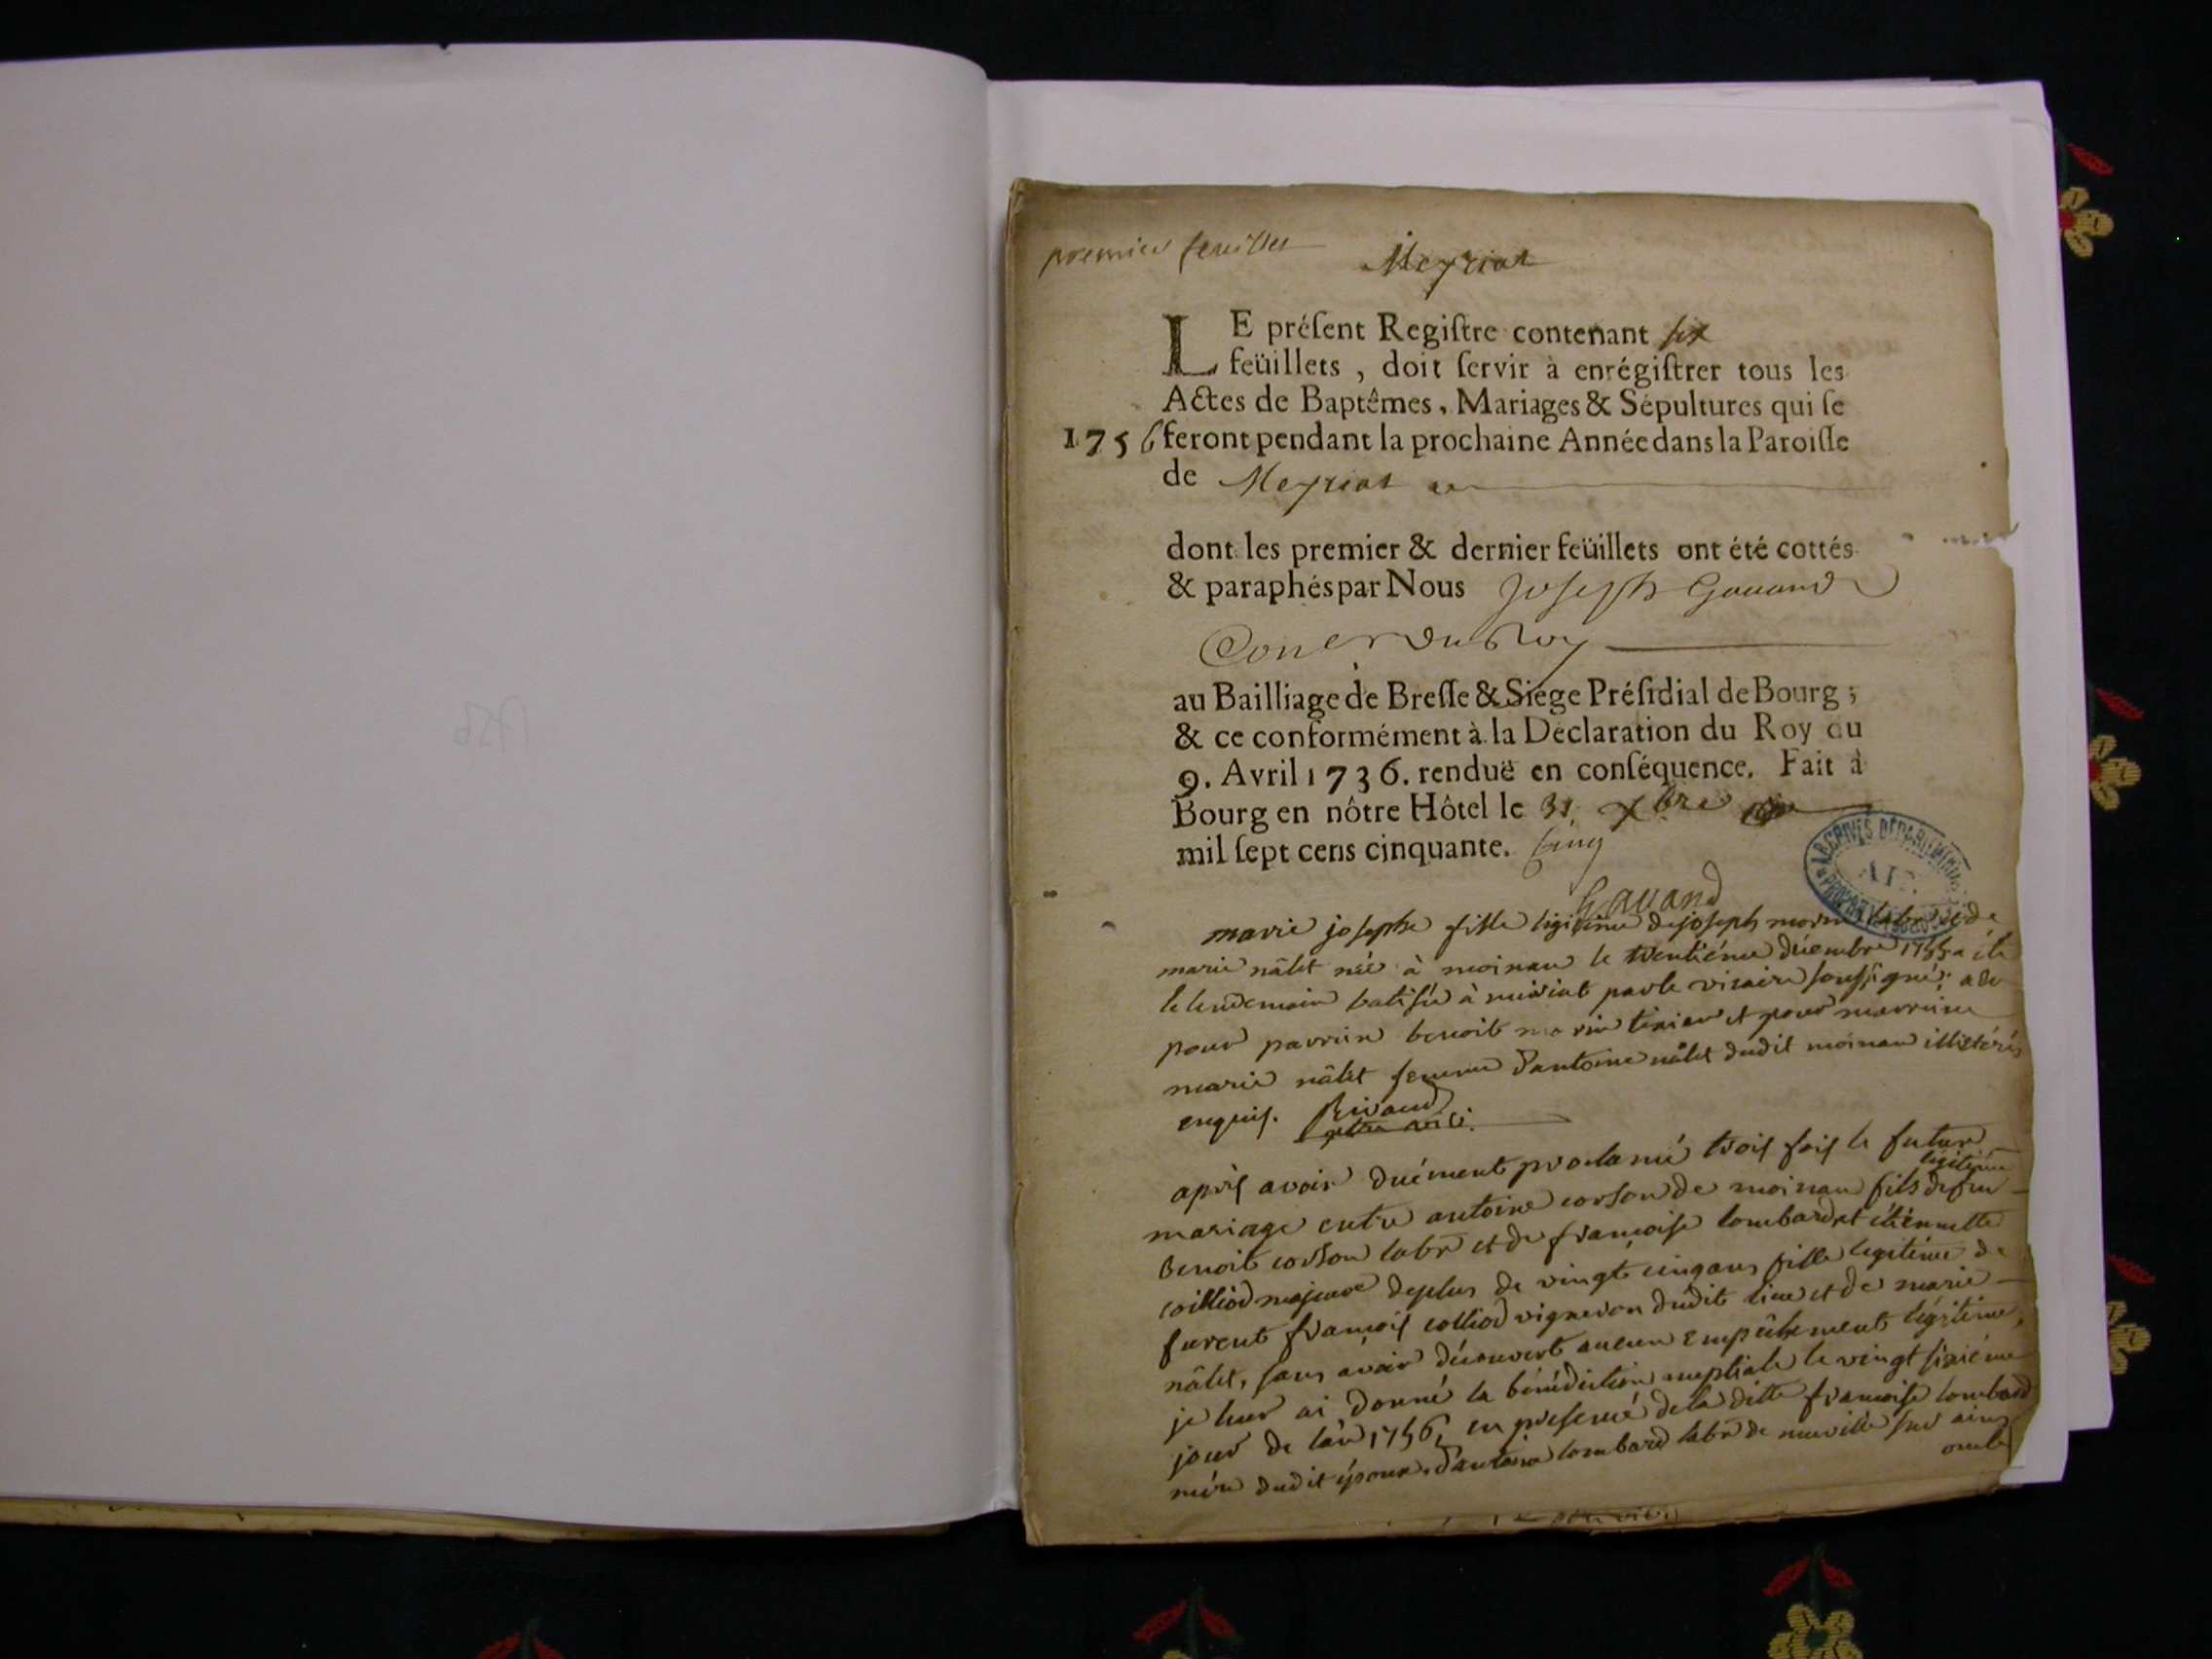 premier feuillet
Meyriat
LE préſent Regiſtre contenant six
feüillets, doit ſervir à enrégiſtrer tous les
Actes de Baptêmes, Mariages & Sépultures qui ſe
1756 feront pendant la prochaine Année dans la Paroiſſe
de Meyriat
dont les premier & dernier feüillets ont été cottés
& paraphés par Nous Joseph Gauand
Coner du Roy
au Bailliage de Breſſe & Siége Préſidial de Bourg;
& ce conformément à la Déclaration du Roy du
9. Avril 1736. renduë en conſéquence. Fait à
Bourg en nôtre Hôtel le 31 xbre
mil ſept cens cinquante. cinq
Gauand
ARCHIVES DÉPARTEMENTALES AIN
marie josephe fille légitime de joseph morin labr et de
marie nâlet née à moinan le trentiéme décembre 1755 a été
le lendemain batisée à miriat par le vicaire soussigné: a eu
pour parrin benoit morin et pour marrine
marie nâlet femme d'antoine nâlet dudit moinan illitérés
enquis. Rivaud
après avoir duément proclamé trois fois le futur
légitime
mariage entre antoine corson de moinan fils de feu
benoit corson labr et de françoise lombard et étiennette
colliod majeure deplus de vingt cinq ans fille légitime de
furent françois colliod vigneron dudit lieu et de marie
nâlet, sans avoir découvert aucun empêchement légitime,
je leur ai donné la bénédiction nuptiale le vingt sixiéme
jour de l'an 1756, en présence de la ditte françoise lombard
mére dudit époux, d'antoine lombard labr de neuville sur ain
oncle